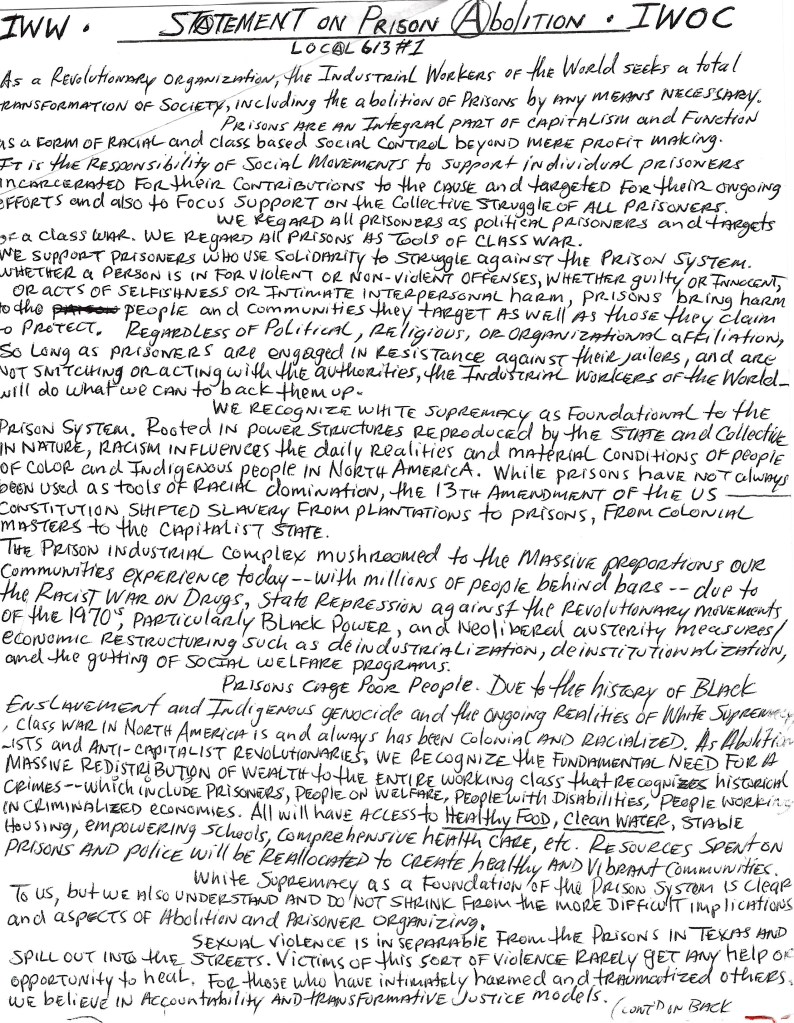 IWW. STATEMENT ON PRISON ABOLITION. IWOC
LOCAL 613 #1
AS a REVOLUTIONARY ORGANIZATION, the INDUSTRIAL WORKERS OF the WORLD SEEKS a total
TRANSFORMATION OF SOCIETY, including the abolition OF PRISONS by ANY MEANS NECESSARY.
PRISONS ARE AN INTEGRAL PART OF CAPITALISM and FUNCTION
as a FORM OF RACIAL and class based SOCIAL CONTROL BEYOND MERE PROFIT MAKING.
IT is the RESPONSIBILITY OF SOCIAL MOVEMENTS to SUPPORT individual PRISONERS
INCARCERATED FOR their CONTRIBUTIONS to the CAUSE and targeted FOR their ONGOING
EFFORTS and also to FOCUS SUPPORT ON the Collective Struggle OF ALL PRISONERS.
WE REGARD All PRISONERS as political PRISONERS and targets
of a class WAR. WE REGARD All PRISONS AS Tools OF CLASS WAR.
WE SUPPORT PRISONERS WHO USE SOLIDARITY to Struggle against the PRISON SYSTEM.
WHETHER a PERSON IS IN FOR VIOLENT OR NON-VIOLENT OFFENSES, WHETHER guilty OR INNOCENT,
OR ACTS OF SELFISHNESS OR INTIMATE INTERPERSONAL harm, PRISONS bRING harm
to the PEOPLE and COMMUNITIES they TARGET AS WEll AS those they claim
to PROTECT. REGARDLESS OF Political, RELIGIOUS, OR ORGANIZATIONAL affiliation,
SO LONG as PRISONERS ARE engaged IN RESISTANCE against their JAILERS, and ARE
NOT SNITCHING OR ACTING with the authorities, the INDUSTRIAL WORKERS OF the WORLD-
will do what we CAN to back them up.
WE RECOGNIZE WHITE SUPREMACY as FOUNDATIONAL to the
PRISON SYSTEM. Rooted IN POWER STRUCTURES REPRODUCED by the STATE and Collective
IN NATURE, RACISM INFLUENCES the daily REALITIES and MATERIAL CONDITIONS OF PEOPLE
OF COLOR and INDIGENOUS people IN NORTH AMERICA. While PRISONS have NOT always
been used as tools OF RACIAL domination, the 13TH AMENDMENT OF the US
CONSTITUTION, SHIFTED SLAVERY FROM PLANTATIONS to PRISONS, FROM COLONIAL
MASTERS to the CAPITALIST STATE.
THE PRISON INDUSTRIAL COMPLEX mushROOMED to the MASSIVE PROPORTIONS OUR
COMMUNITIES EXPERIENCE today--with millions OF people behind bars--due to
the RACIST WAR ON DRUGS, STATE REPRESSION against the REVOLUTIONARY MOVEMENTS
OF the 1970's, PARTICULARLY BLACK POWER, and NEOLIBERAL AUSTERITY MEASURES/
ECONOMIC RESTRUCTURING such as deINDUSTRIALIZATION, deINSTITUTIONALIZATION,
and the gutting OF SOCIAL WELFARE PROGRAMS.
PRISONS CAGE POOR People. DUE to the history OF BLACK
ENSLAVEMENT and INDIGENOUS GENOCIDE and the ONGOING REALITIES OF White SUPREMACY
, Class WAR IN NORTH AMERICA is and always has been COLONIAL AND RACIALIZED. AS AbOlition
-ISTS and ANTI-CAPITALIST REVOLUTIONARIES, WE RECOGNIZE the FUNDAMENTAL NEED FOR A
MASSIVE REDISTRIBUTION OF WEALTH to the ENTIRE working class that RECOGNIZES historical
CRIMES--which INCLUDE PRISONERS, PEOPLE ON WELFARE, PEOPLE with DISABILITIES, PEOPLE WORKING
IN CRIMINALIZED ECONOMIES. All will have ACCESS to HEAlthy FOOD, Clean WATER, STABLE
Housing, empowering schools, COMPREHENSIVE health CARE, etc. RESOURCES SPENT ON
PRISONS AND POLICE will be REALLOCATED to CREATE healthy AND Vibrant COMMUNITIES.
White SUPREMACY as a FOUNDATION OF the PRISON SYSTEM IS clear
To us, but WE Also UNDERSTAND AND DO NOT SHRINK FROM the MORE DIFFICULT implications
and aspects OF Abolition and PRISONER ORGANIZING.
SEXUAL VIOLENCE is INSEPARABLE FROM the PRISONS IN TEXAS AND
SPILL OUT INTO the STREETS. VICTIMS OF this SORT OF VIOLENCE RARELY get ANY help OR
OPPORTUNITY to heal. FOR those who have intimately harmed and traumatized others,
WE bElIEVE in Accountability AND TRANSFORMATIVE JUSTICE models. (CONT'D ON BACK